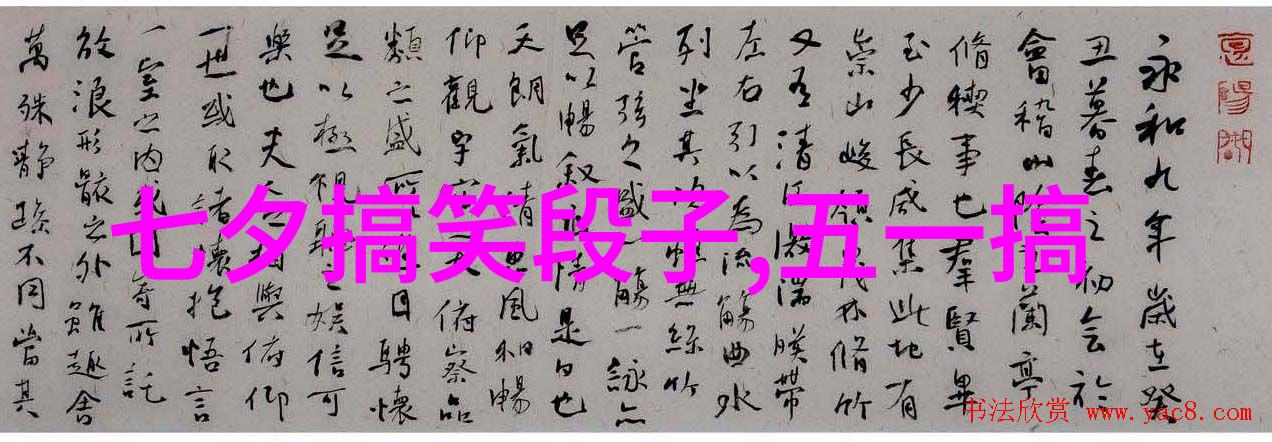 永和九年歲在癸
丑暮春之初會於
會稽山蘭亭
脩稧事也羣賢畢
至少長咸集此地有
崇山峻領茂林脩竹
又有清流激湍暎帶
左右引以為流觴曲水
列坐其次雖無絲竹
管弦之盛一觴一詠亦
足以暢叙情是日也
天朗氣清惠風和暢
仰觀宇大俯察品
類之盛所目騁懷
足以極視聽之娛信可
樂也夫人之相與俯仰
一世或取諸懷抱悟言
一室之內或因寄所託
放浪形骸之外雖趣舍
萬殊靜躁不同當其
七夕搞笑段子,五一搞
书法欣赏
www.yac8.com